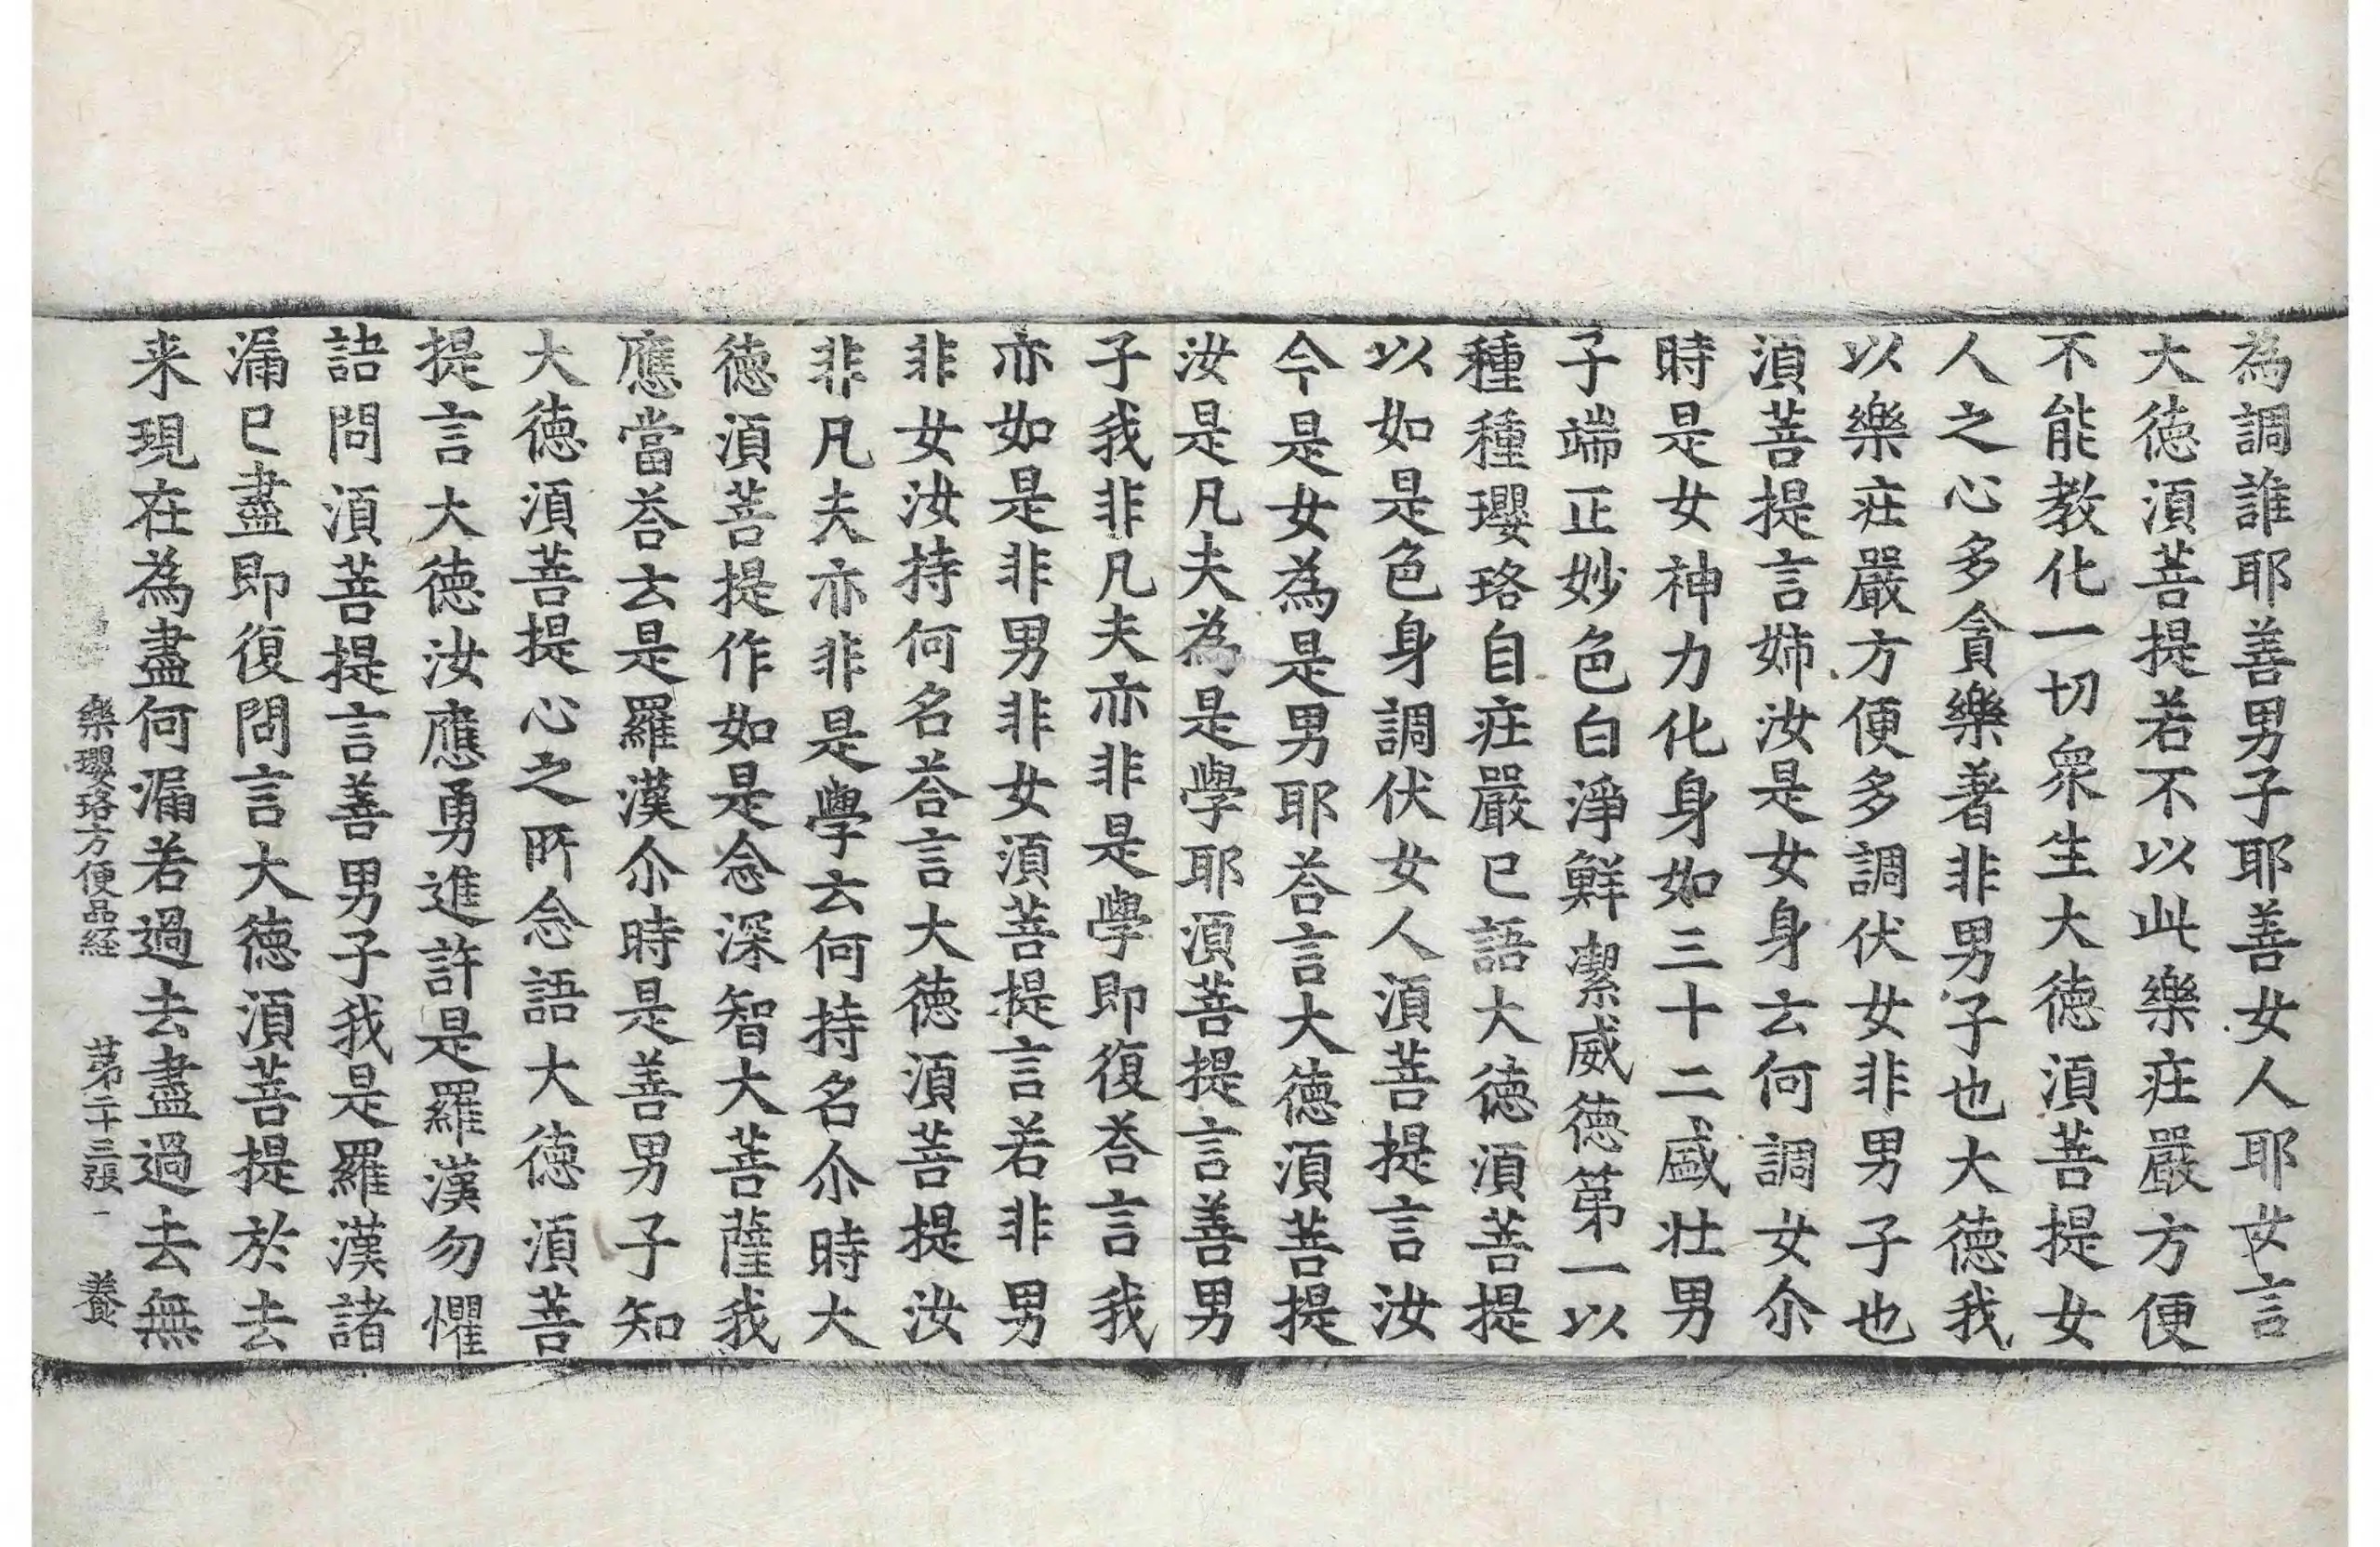 為調誰耶善男子耶善女人耶女言
大徳湏菩提若不以此樂疘嚴方便
不能教化一切衆生大徳湏菩提女
人之心多貪樂著非男子也大徳我
以樂疘嚴方便多調伏女非男子也
湏菩提言姉汝是女身云何調女尒
時是女神力化身如三十二盛壯男
子端正妙色白淨鮮潔威徳第一以
種種瓔珞自疘嚴已語大徳湏菩提
以如是色身調伏女人湏菩提言汝
今是女為是男耶荅言大徳湏菩提
汝是凡夫為是學耶湏菩提言善男
子我非凡夫亦非是學即復荅言我
亦如是非男非女湏菩提言若非男
非女汝持何名荅言大徳湏菩提汝
非凡夫亦非是學云何持名尒時大
徳湏菩提作如是念深智大菩薩我
應當荅云是羅漢尒時是善男子知
大徳湏菩提心之所念語大徳湏菩
提言大徳汝應勇進許是羅漢勿懼
詰問湏菩提言善男子我是羅漢諸
漏已盡即復問言大徳湏菩提於去
来現在為盡何漏若過去盡過去無
樂瓔珞方便品経　第二十三張　養